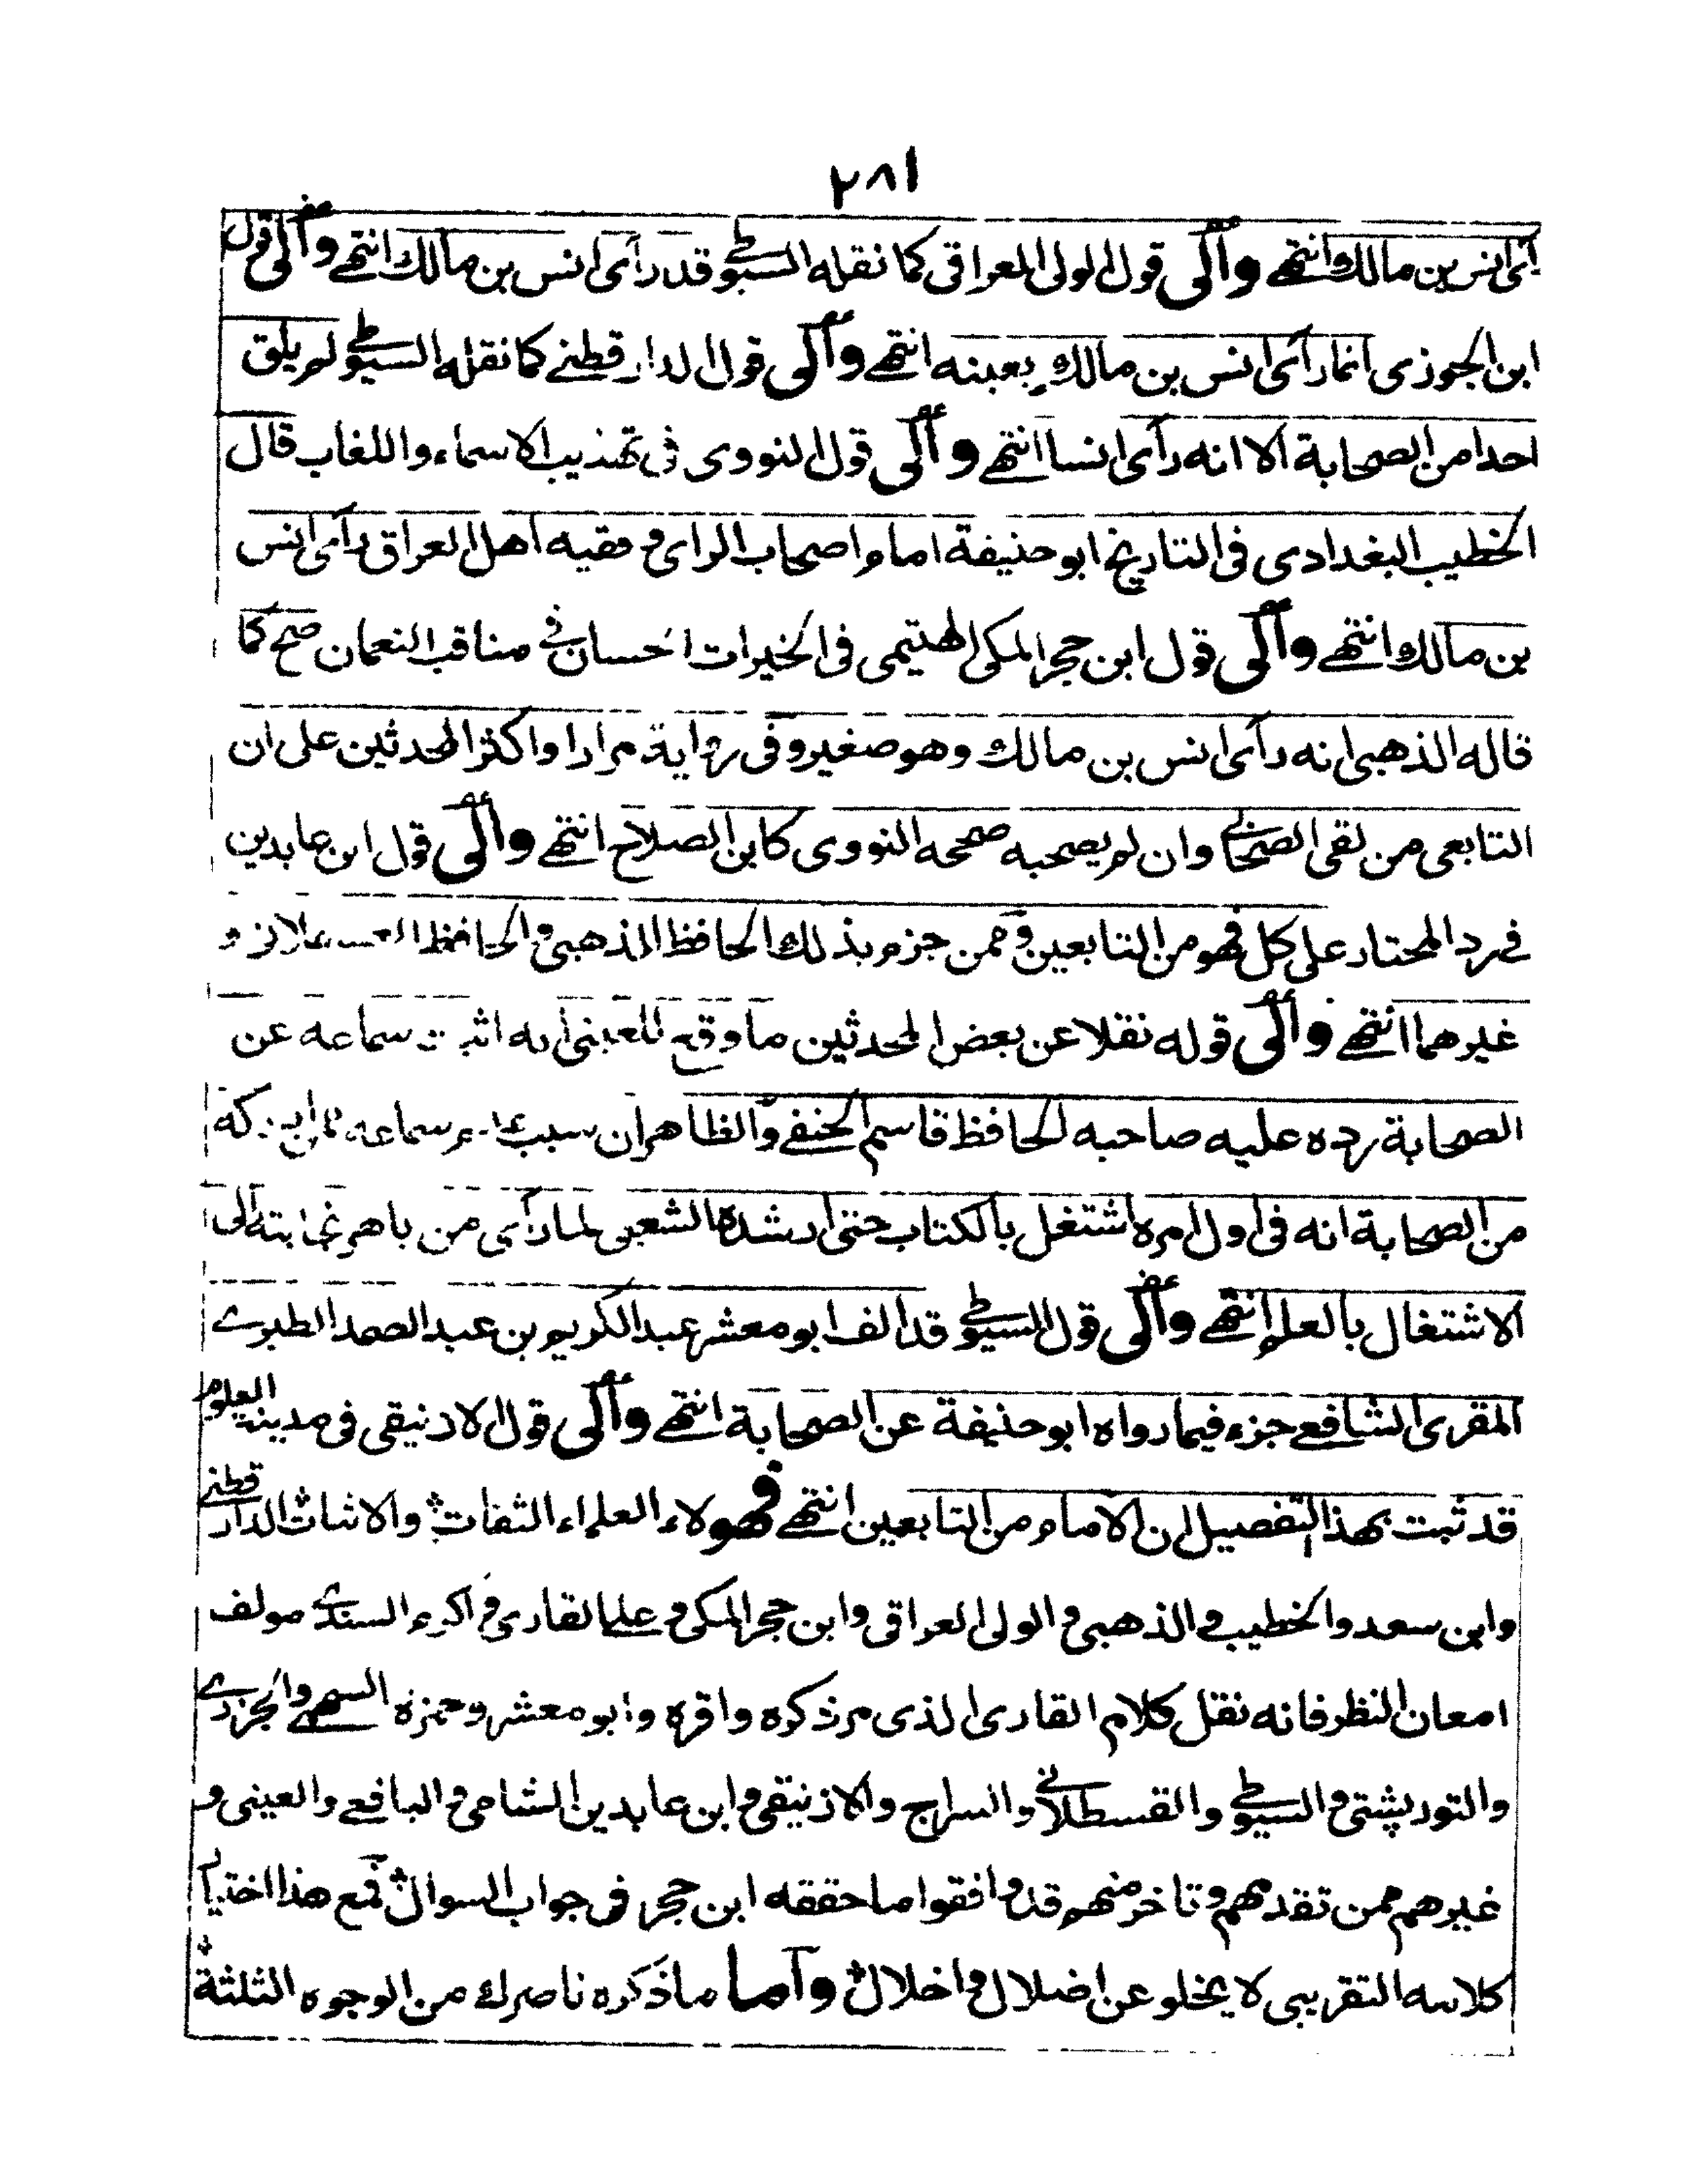 ٢٨١
رأى انس بن مالك انتهى وآلى قول الولى العراقى كما نقله السيوطى قد رأى انس بن مالك انتهى وآلى قول
ابن الجوزى انما رأى انس بن مالك بعينه انتهى وآلى قول الدار قطنى كما نقله السيوطى لم يلق
احدا من الصحابة الا انه رأى انسا انتهى وآلى قول النووى فى تهذيب الاسماء واللغاب قال
الخطيب البغدادى فى التاريخ ابو حنيفة امام اصحاب الراى و فقيه اهل العراق رأى انس
بن مالك انتهى وآلى قول ابن حجر المكى الهيتمى فى الخيرات الحسان فى مناقب النعمان صح كما
قاله الذهبى انه رأى انس بن مالك وهو صغير وفى رواية مرارا واكثر المحدثين على ان
التابعى من لقى الصحابى وان لم يصحبه صححه النووى كابن الصلاح انتهى وآلى قول ابن عابدين
فى رد المحتار على كل فهو من التابعين وممن جزم بذلك الحافظ الذهبى و الحافظ العسقلانى و
غيرهما انتهى وآلى قوله نقلا عن بعض المحدثين ما وقع للعينى انه اثبت سماعه عن
الصحابة رده عليه صاحبه الحافظ قاسم الحنفى والظاهر ان سبب عدم سماعه ممن ادركه
من الصحابة انه فى اول امره اشتغل بالكتاب حتى ارشده الشعبى لما رأى من باهر نجابته الى
الاشتغال بالعلم انتهى وآلى قول السيوطى قد الف ابو معشر عبد الكريم بن عبد الصمد الطبرى
المقرى الشافعى جزء فيما رواه ابو حنيفة عن الصحابة انتهى وآلى قول الازنيقى فى مدينة العلوم
قد ثبت بهذا التفصيل ان الامام من التابعين انتهى فهولاء العلماء الثقات والاثبات الدار قطنى
وابن سعد والخطيب و الذهبى و الولى العراقى وابن حجر المكى و على القارى و اكرم السندى مولف
امعان النظر فانه نقل كلام القارى الذى مر ذكره واقره وابو معشر وحمزة السهمى والجزرى
والتور پشتى و السيوطى والقسطلانى والسراج والازنيقى و ابن عابدين الشامى و اليافعى والعينى و
غيرهم ممن تقدمهم و تاخر منهم قد وافقوا ما حققه ابن حجر فى جواب السوال فمع هذا اختيار
كلامه التقريبى لا يخلو عن اضلال و اخلال وآما ما ذكره ناصرك من الوجوه الثلثة